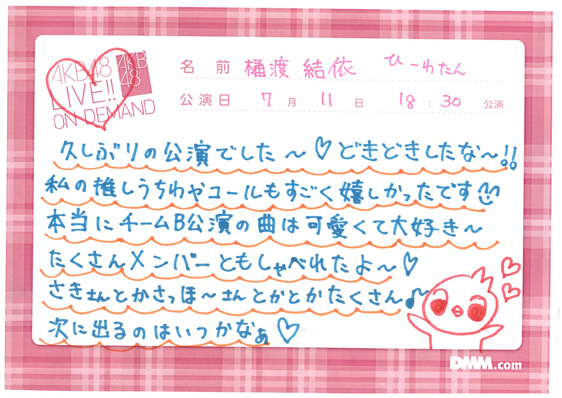 AKB48
LIVE!!
ON DEMAND
AKB
48
名 前 樋渡 結依 ひーわたん
公演日 7 月 11 日 18 : 30 公演
久しぶりの公演でした〜♡どきどきしたな〜!!
私の推しうちわやコールもすごく嬉しかったです
本当にチームB公演の曲は可愛くて大好き〜
たくさんメンバーともしゃべれたよ〜♡
さきさんとかさっほ〜さんとかとかたくさん♪
次に出るのはいつかなぁ♡
DMM.com